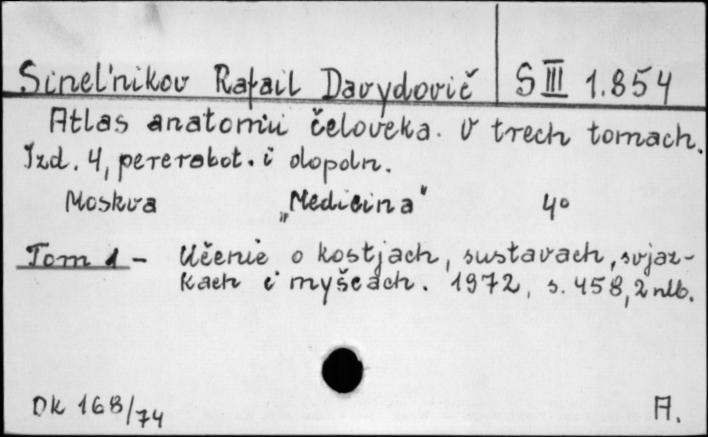 Sinel'nikov Rafail Davydovič S III 1.854
Atlas anatomii čeloveka. V trech tomach.
Izd. 4, pererabot. i dopoln.
Moskva "Medicina" 4°
Tom 1 - Učenie o kostjach, sustavach, svjaz-
kach i myšcach. 1972, s. 458, 2 nlb.
Dk 168/74 A.